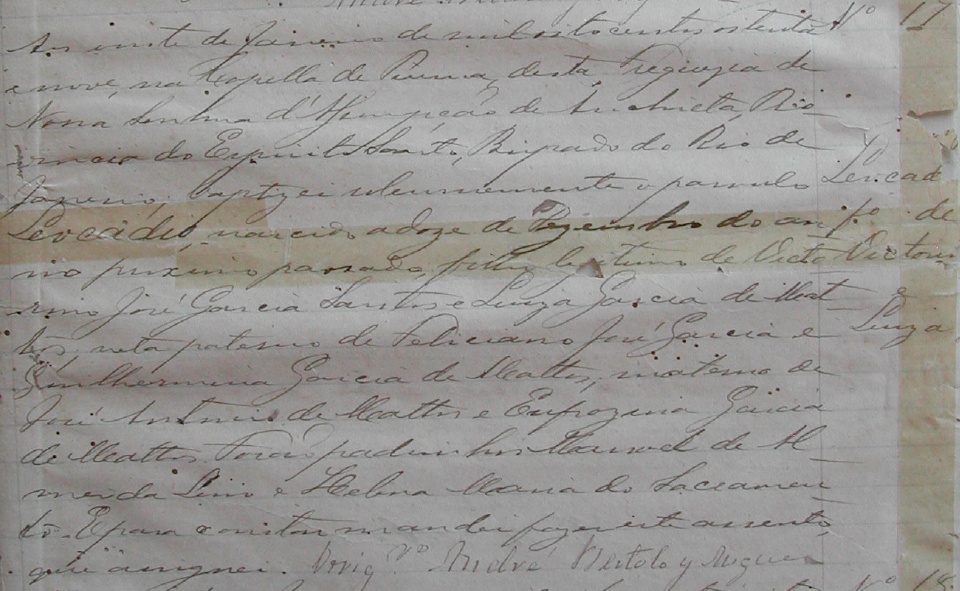 Nº 17
Aos vinte de Janeiro de mil oitocentos oitenta
e nove, na Capella de Piuma, desta Freguezia de
Nossa Senhora d'Assumpção de Anchieta, Pro-
vincia do Espirito Santo, Bispado do Rio de
Janeiro, baptizei solemnemente o parvulo
Leocadio, nascido a doze de Dezembro do an
no proximo passado, filho legitimo de Victo
rino José Garcia Santos e Luiza Garcia de Mat
tos, neto paterno de Feliciano José Garcia e
Guilhermina Garcia de Mattos, materno de
José Antonio de Mattos e Eufrozina Garcia
de Mattos. Forão padrinhos Manoel de Al
meida Lirio e Helena Maria do Sacramen
to. E para constar mandei fazer este assento,
que assignei. Vorigº André
Leocad
fº de
Victori
e
Luiza
Nº 18